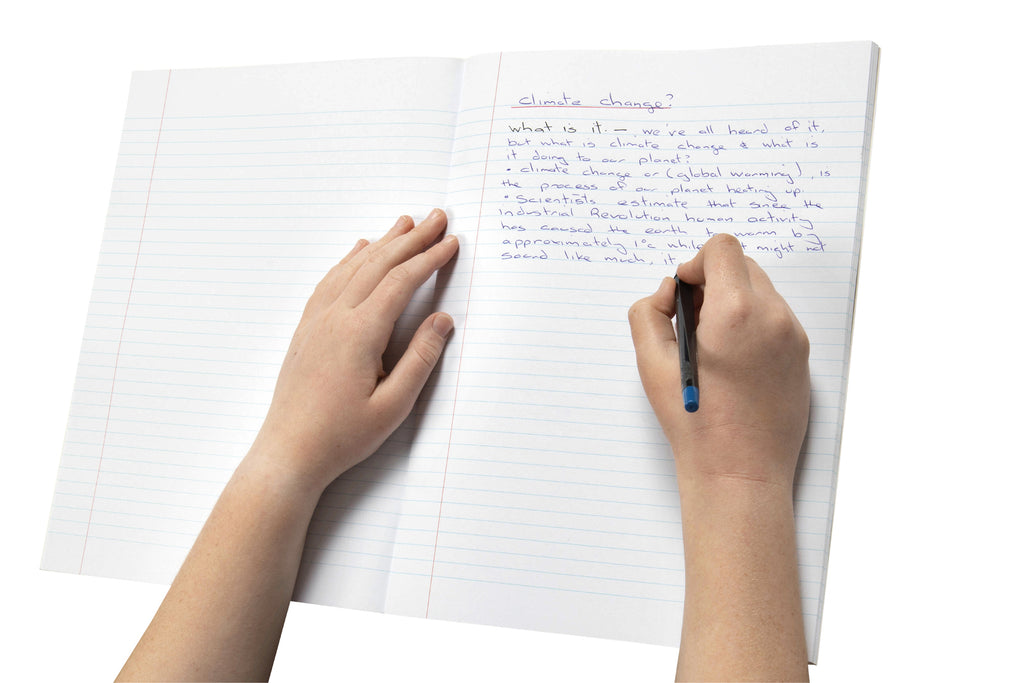 climate change?
what is it. – we've all heard of it,
but what is climate change & what is
it doing to our planet?
• climate change or (global warming), is
the process of our planet heating up.
• Scientists estimate that since the
Industrial Revolution human activity
has caused the earth to warm by
approximately 1°c while might not
sound like much, it